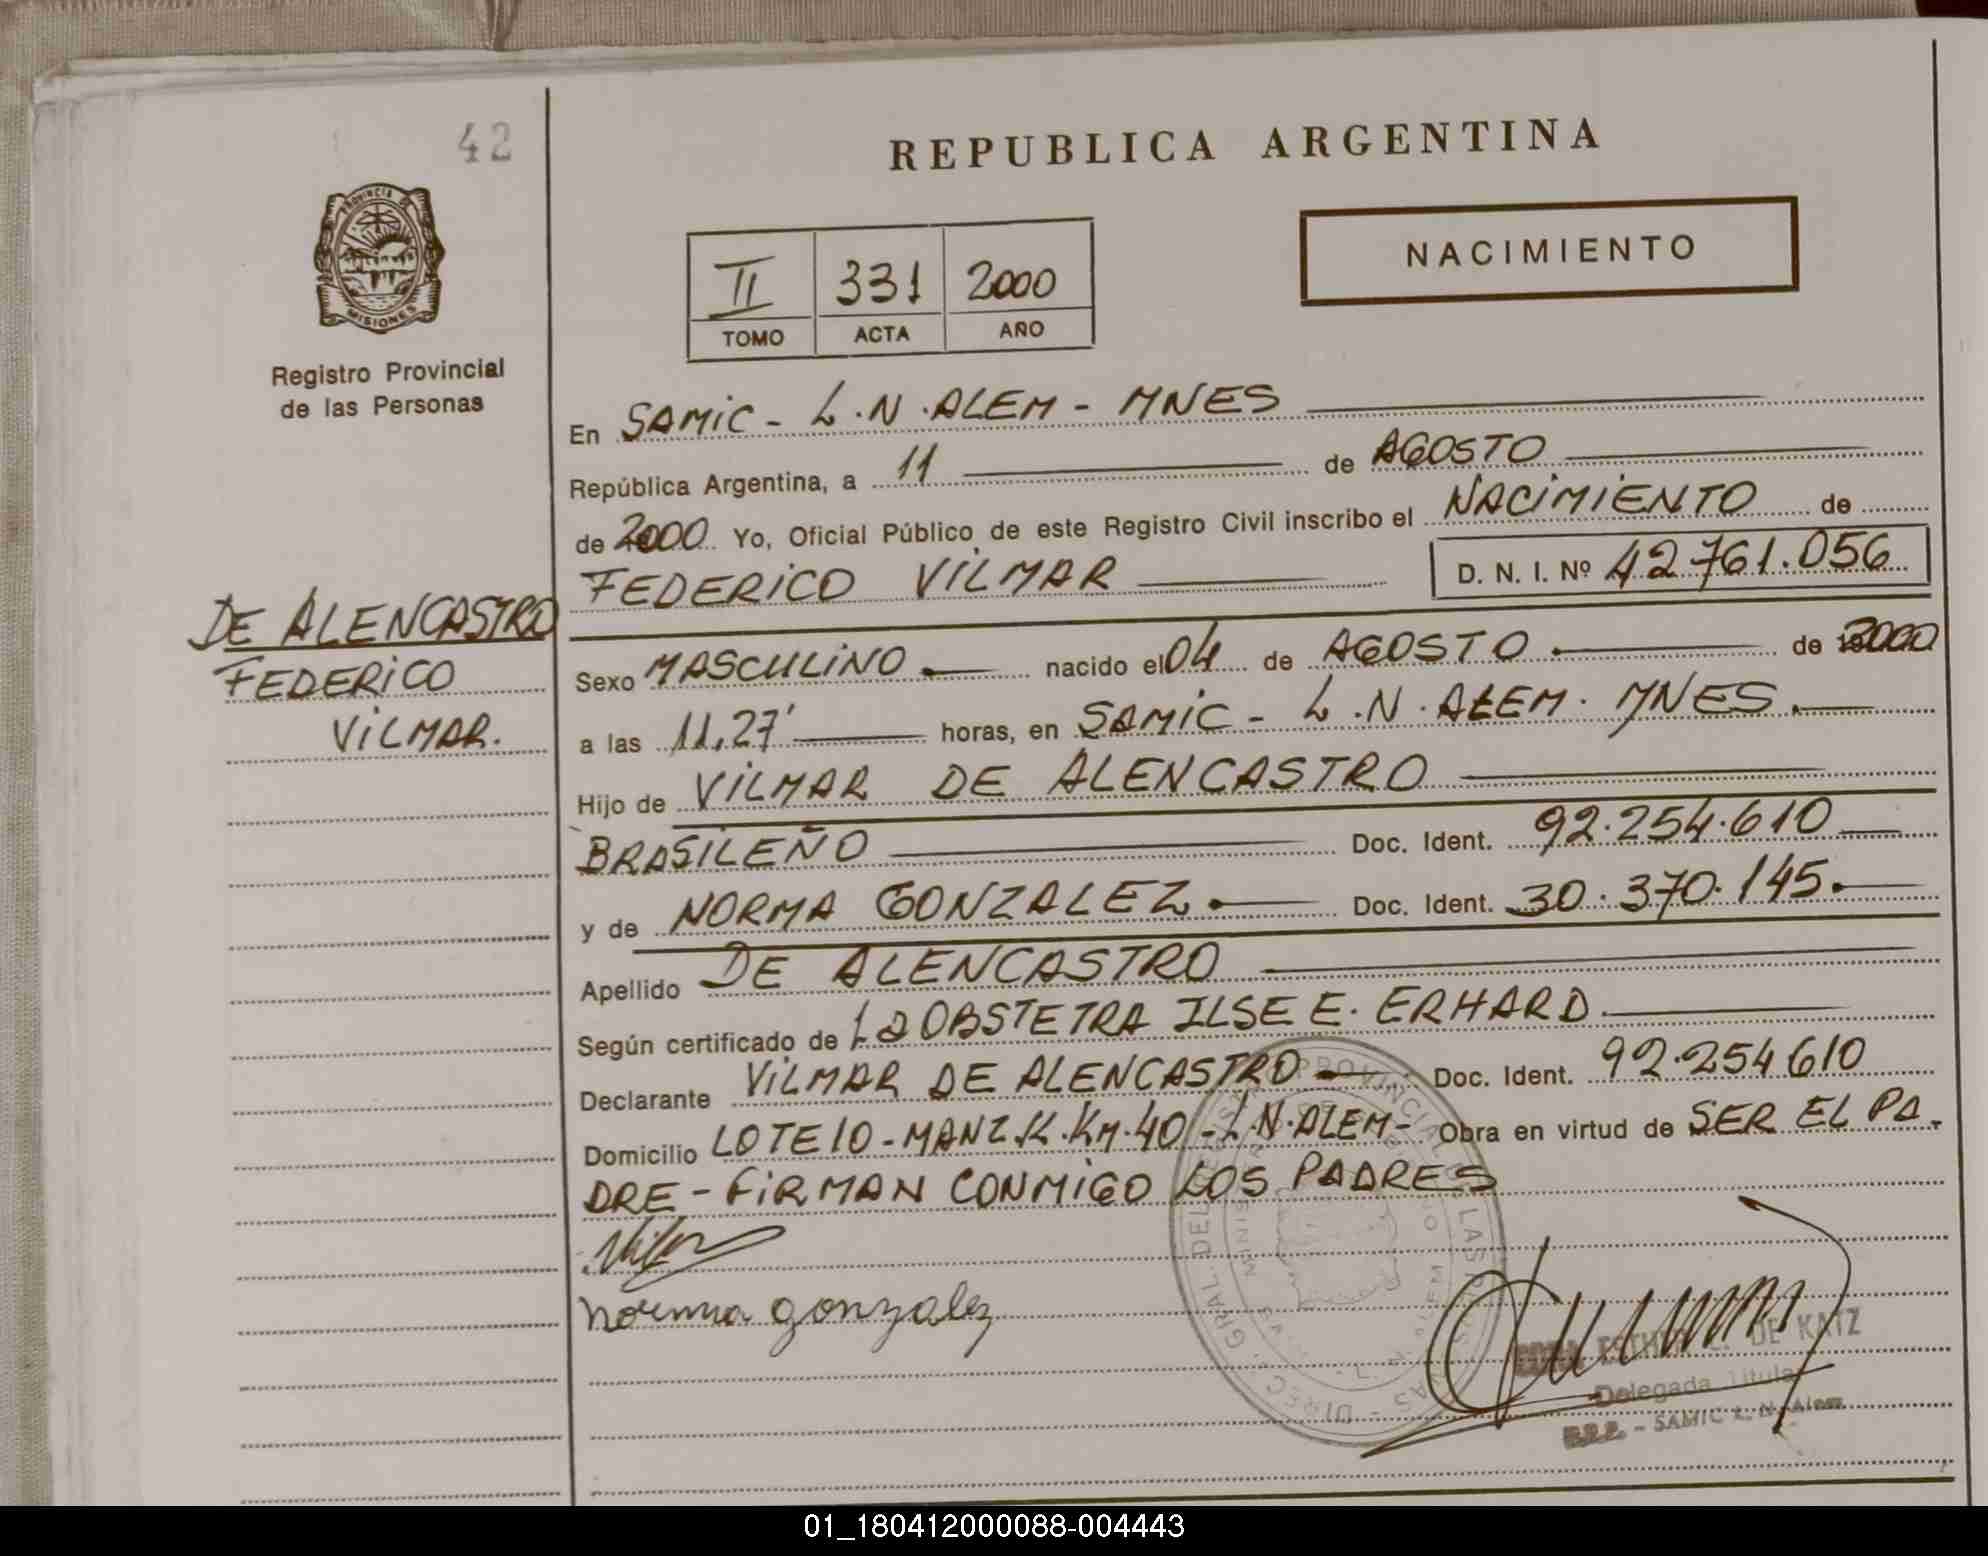 42
REPUBLICA ARGENTINA
PROVINCIA DE
MISIONES
Registro Provincial
de las Personas
II 331 2000
TOMO ACTA AÑO
NACIMIENTO
En SAMIC - L.N.ALEM - MNES
República Argentina, a 11 de AGOSTO
de 2000 Yo, Oficial Público de este Registro Civil inscribo el NACIMIENTO de
FEDERICO VILMAR D. N. I. Nº 42.761.056
DE ALENCASTRO
FEDERICO
VILMAR.
Sexo MASCULINO nacido el 04 de AGOSTO de 2000
a las 11,27' horas, en SAMIC - L.N.ALEM. MNES.
Hijo de VILMAR DE ALENCASTRO
BRASILEÑO Doc. Ident. 92.254.610
y de NORMA GONZALEZ. Doc. Ident. 30.370.145.
Apellido DE ALENCASTRO
Según certificado de La OBSTETRA ILSE E. ERHARD.
Declarante VILMAR DE ALENCASTRO Doc. Ident. 92.254610
Domicilio LOTE 10 - MANZ.K.KM.40 - L.N.ALEM - Obra en virtud de SER EL PA-
DRE - FIRMAN CONMIGO LOS PADRES
norma gonzalez
ESTHER DE KATZ
Delegada Titular
- SAMIC L. N. Alem
01_180412000088-004443